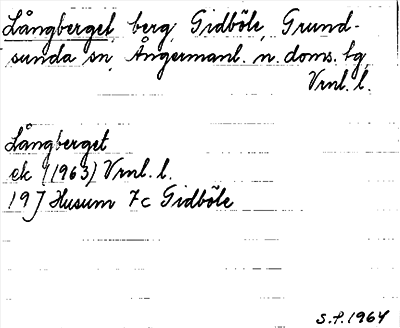 Långberget, berg, Gidböle, Grund-
sunda sn, Ångermanl. n. doms. tg,
Vrnl. l.
Långberget
ek (1963) Vrnl. l.
19 J Husum 7c Gidböle
S.P. 1964